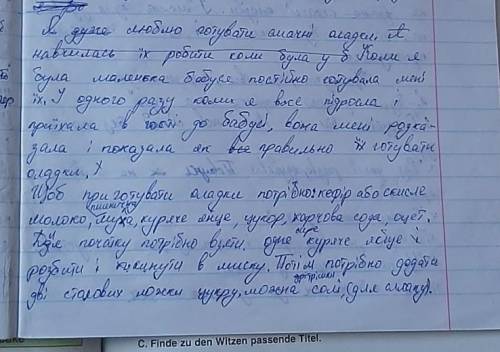 Я дуже люблю готувати смачні оладки. Я
навчилась їх робити коли була у б Коли я
була маленька бабуся постійно готувала мені
їх. І одного разу коли я вже підросла і
приїхала в гості до бабусі, вона мені розка-
зала і показала як все правильно їх готувати
оладки.
Щоб приготувати оладки потрібно: кефір або скисле
молоко, пшеничну муку, куряче яйце, цукор, харчова сода, оцет.
Для початку потрібно взяти одне куряче яйце і
розбити і вкинути в миску. Потім потрібно додати
дві столових ложки цукру, можна трішки солі, (для смаку).
C. Finde zu den Witzen passende Titel.